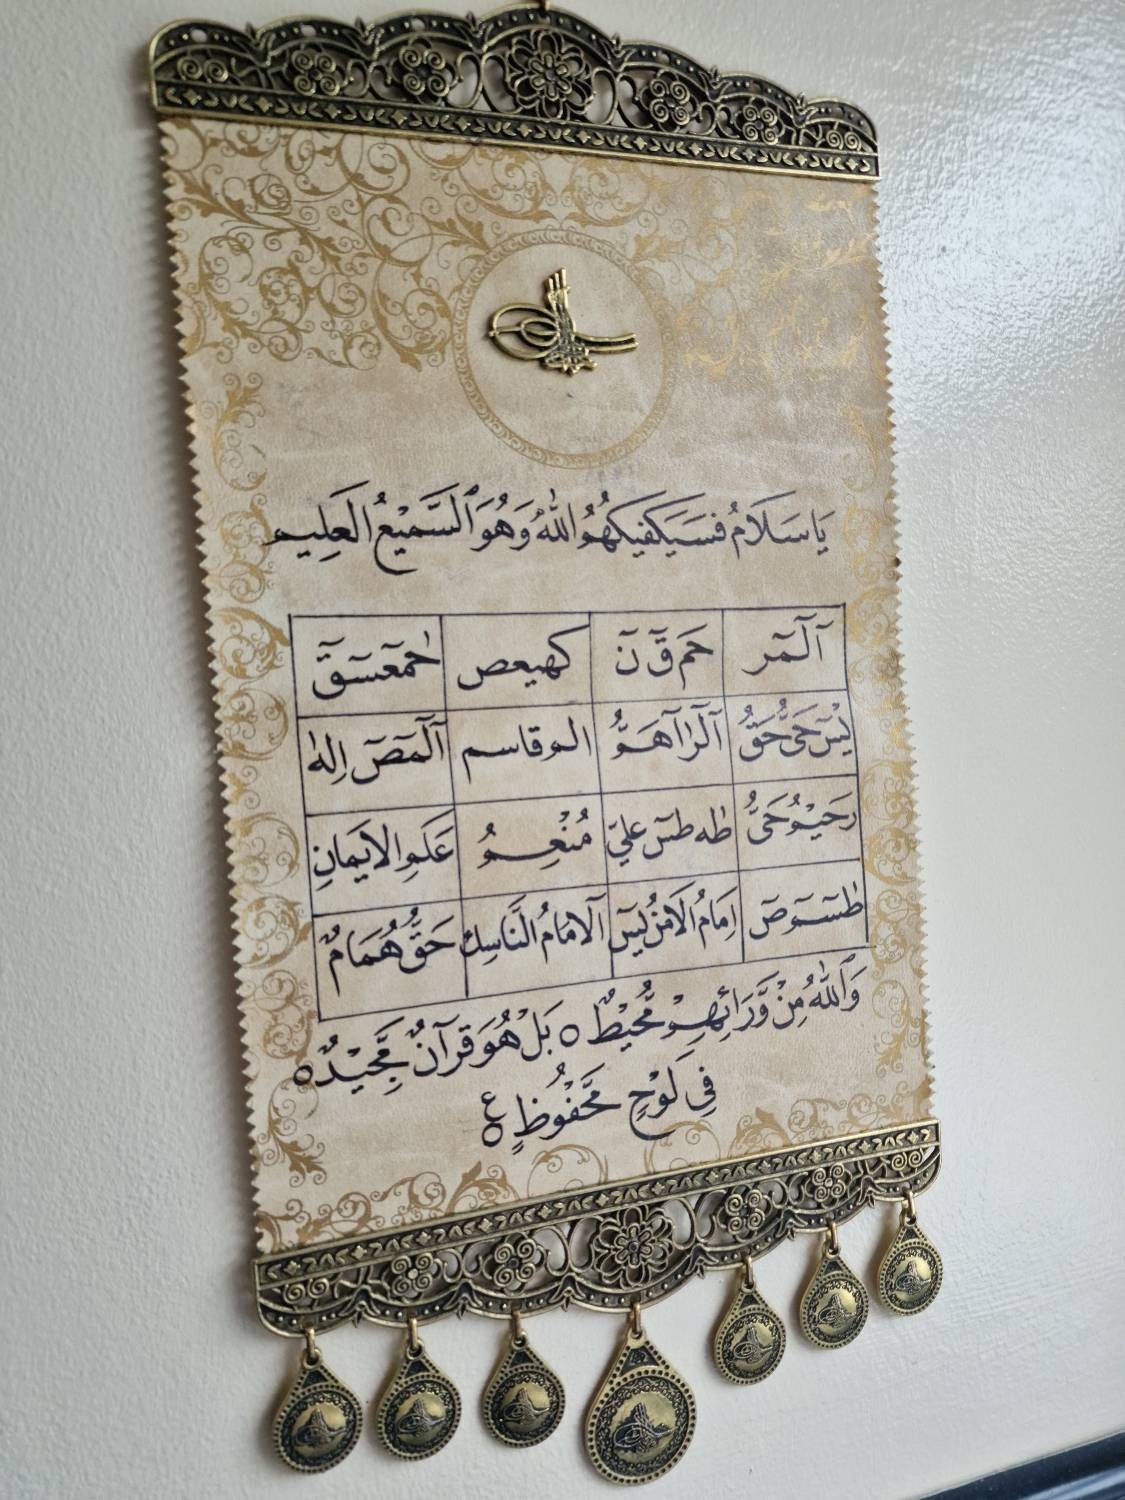 يَا سَلَامُ فَسَيَكْفِيكَهُمُ اللّٰهُ وَهُوَ ٱلسَّمِيْعُ الْعَلِيم
آلٓمٓر حٓمٓ قٓ نٓ كهيعص حٰمٓعٓسٓقٓ
يٰسٓ حَيٌّ حَقٌّ آلٓرٰ اَهَمٌّ الم قاسم آلٓمٓصٓ اِلٰه
رَحِيْمٌ حَيٌّ طٰه طسٓ عليّ مُنْعِمٌ عَلَمِ الْاِيمَانِ
طٰسٓمٓ صٓ اِمَامُ الْاَمْنُ يٰسٓ آلْاِمَامُ النَّاسِك حَقٌّ هُمَامٌ
وَٱللّٰهُ مِنْ وَّرَائِهِمْ مُّحِيْطٌ ۝ بَلْ هُوَ قُرْآنٌ مَّجِيْدٌ ۝
فِي لَوْحٍ مَّحْفُوْظٍ ع